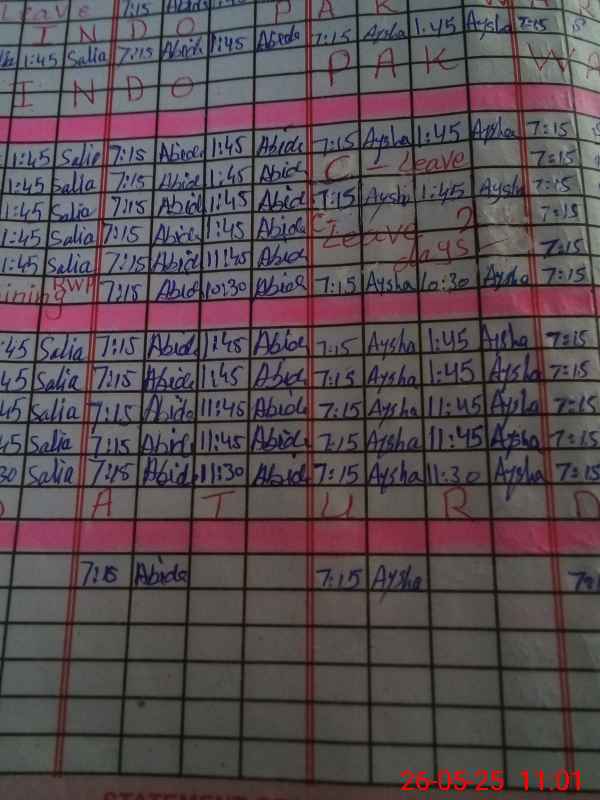 Leave 7:15 Abida P A K
I N D O
1:45 Salia 7:15 Abida 1:45 Abida 7:15 Aysha 1:45 Aysha 7:15
I N D O P A K W A
1:45 Salia 7:15 Abida 1:45 Abida 7:15 Aysha 1:45 Aysha 7:15
1:45 Salia 7:15 Abida 1:45 Abida C - Leave 7:15
1:45 Salia 7:15 Abida 1:45 Abida 7:15 Aysha 1:45 Aysha 7:15
1:45 Salia 7:15 Abida 1:45 Abida Leave 2 7:15
1:45 Salia 7:15 Abida 11:45 Abida days 7:15
ining RWP 7:15 Abida 10:30 Abida 7:15 Aysha 10:30 Aysha 7:15
:45 Salia 7:15 Abida 1:45 Abida 7:15 Aysha 1:45 Aysha 7:15
45 Salia 7:15 Abida 1:45 Abida 7:15 Aysha 1:45 Aysha 7:15
45 Salia 7:15 Abida 11:45 Abida 7:15 Aysha 11:45 Aysha 7:15
45 Salia 7:15 Abida 11:45 Abida 7:15 Aysha 11:45 Aysha 7:15
30 Salia 7:15 Abida 11:30 Abida 7:15 Aysha 11:30 Aysha 7:15
A T U R D
7:15 Abida 7:15 Aysha 7:1
26-05-25 11:01
STATEMENT